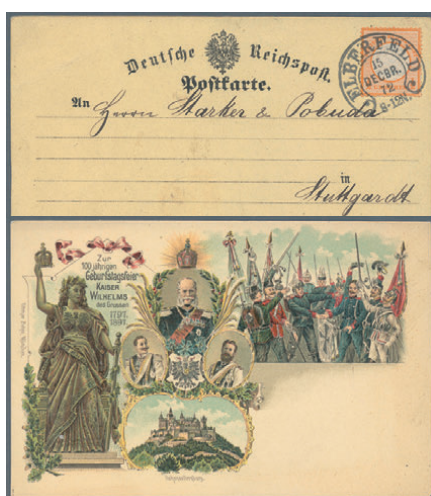 Deutsche Reichspost.
Postkarte.
An Herrn Starker & Pobuda
in
Stuttgardt
ELBERFELD
15
DECBR.
72
8-12N.
Zur
100 jährigen
Geburtstagsfeier
KAISER
WILHELMS
des Grossen.
1797.
1897.